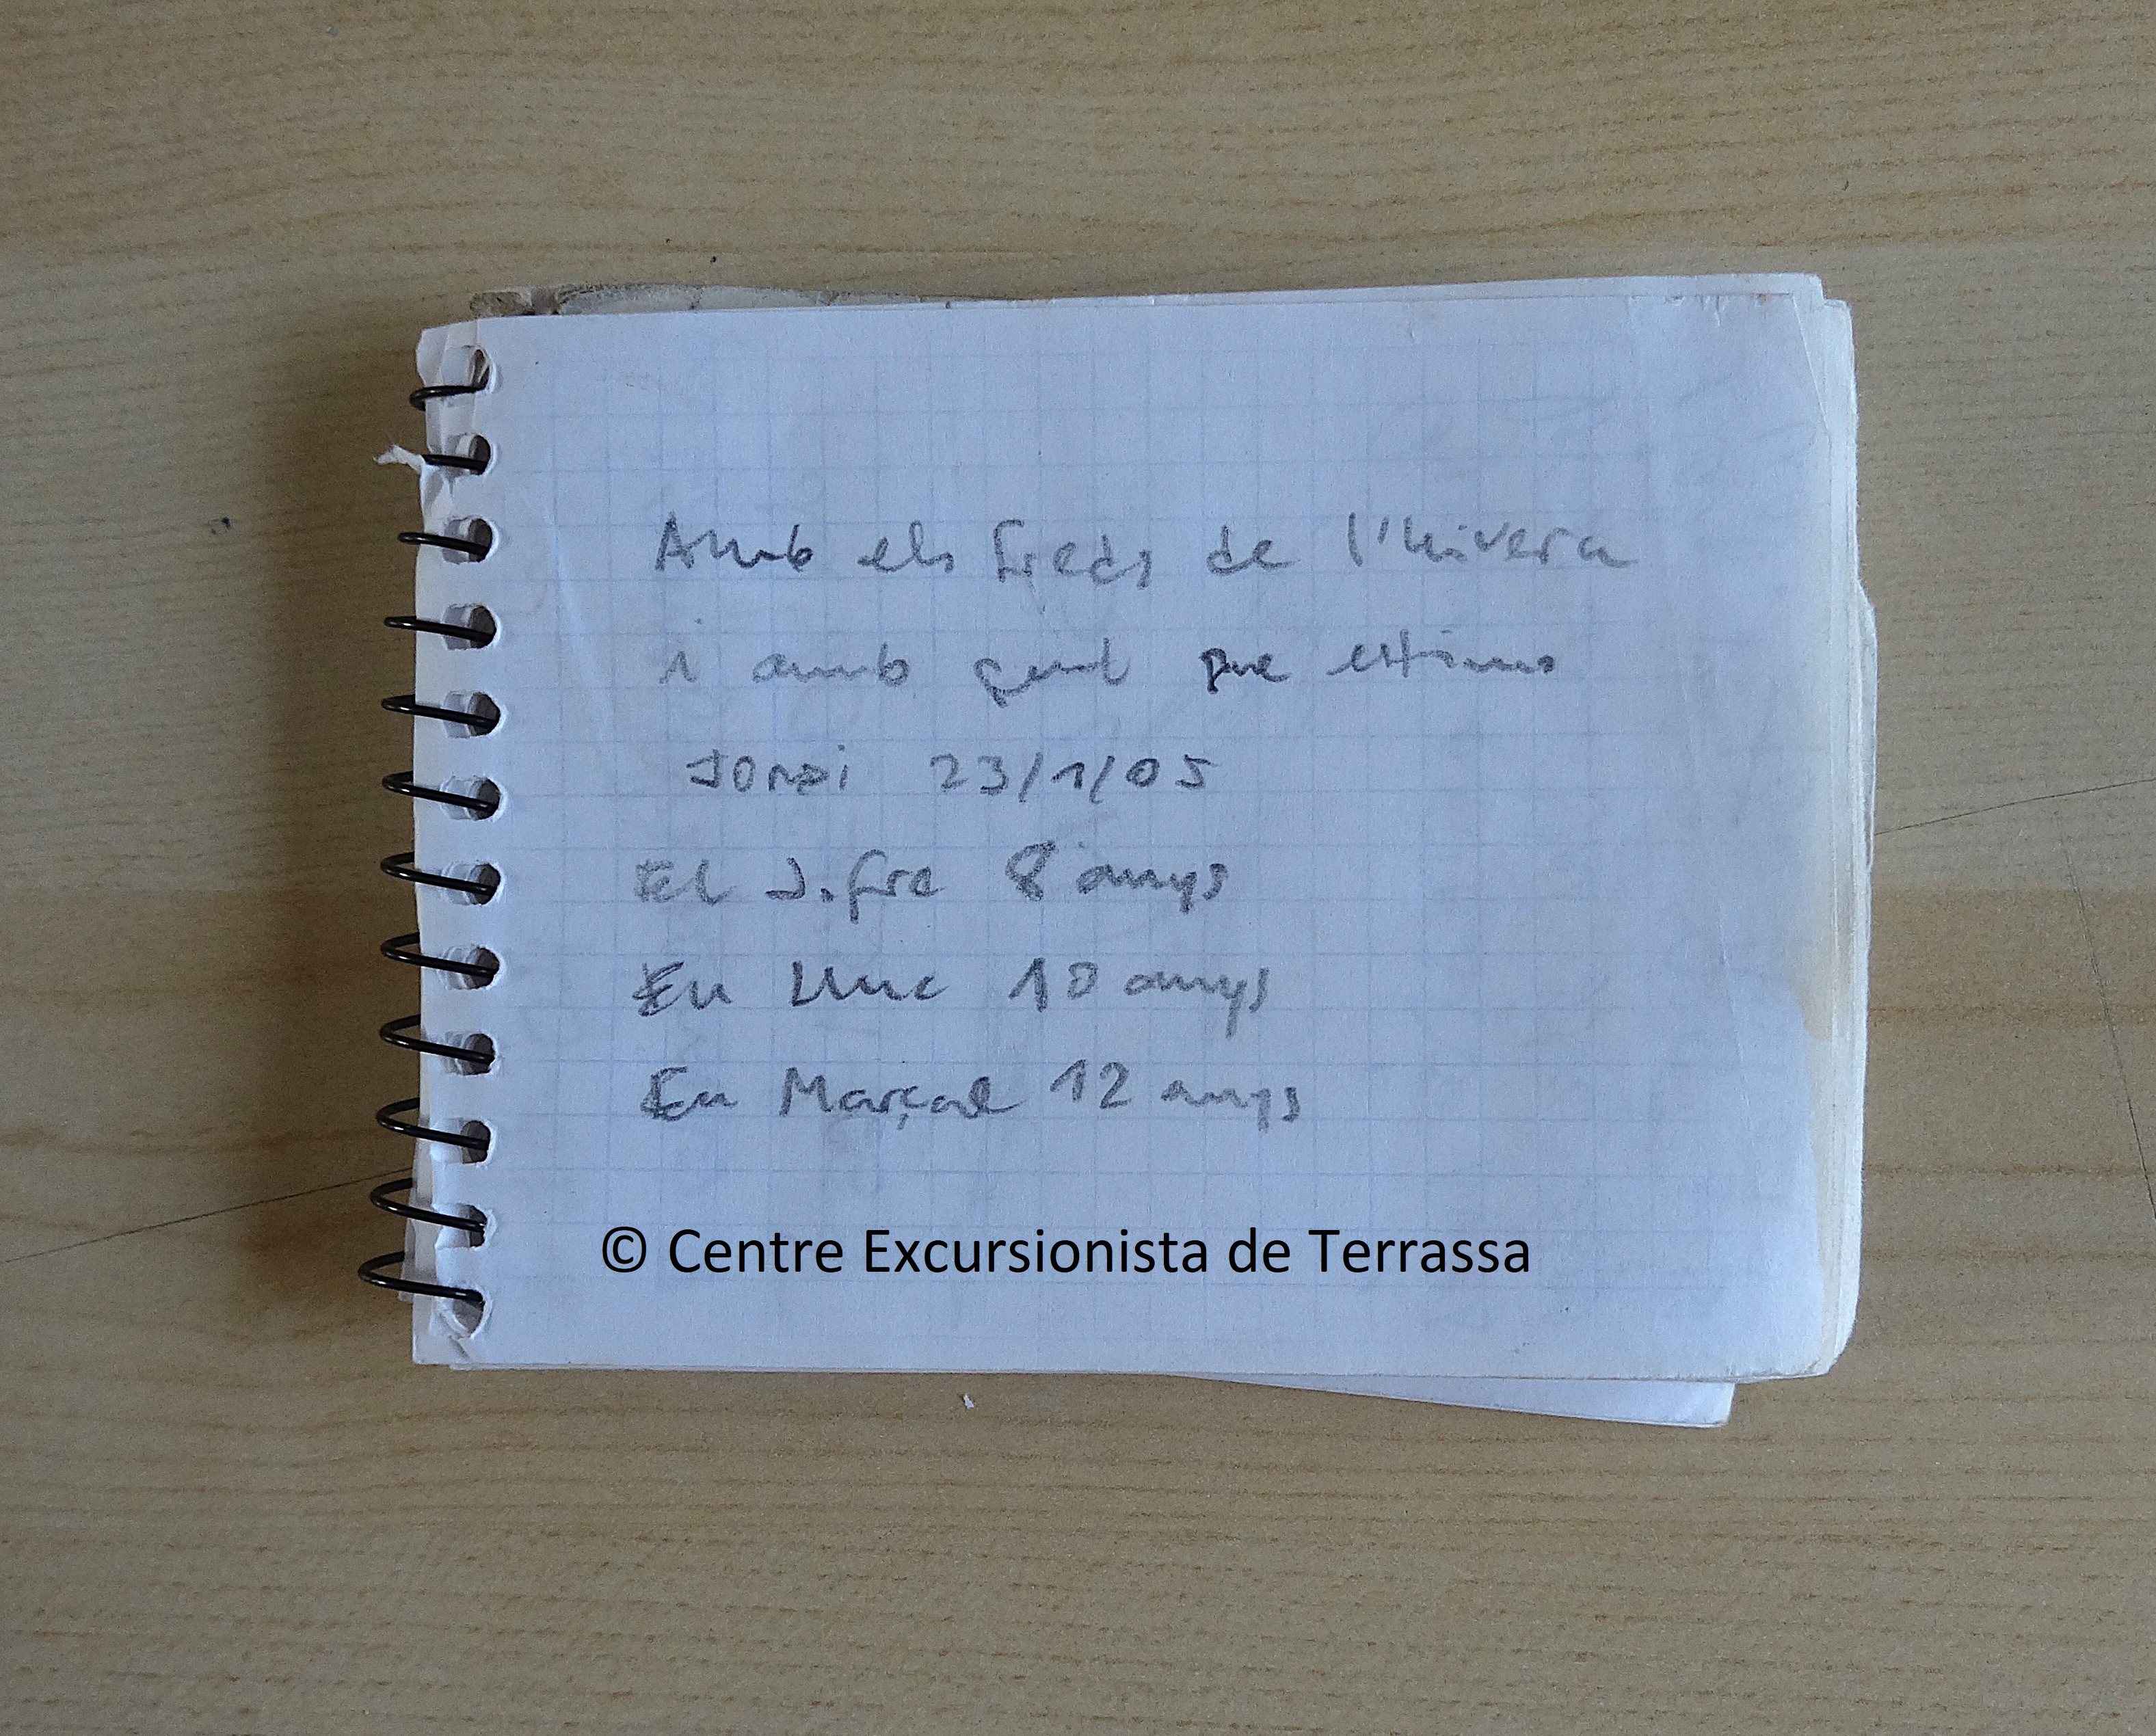 Amb els freds de l'hivern
i amb gent que estimo
JORDI 23/1/05
El J.fre 8 anys
En Lluc 10 anys
En Marçal 12 anys
© Centre Excursionista de Terrassa